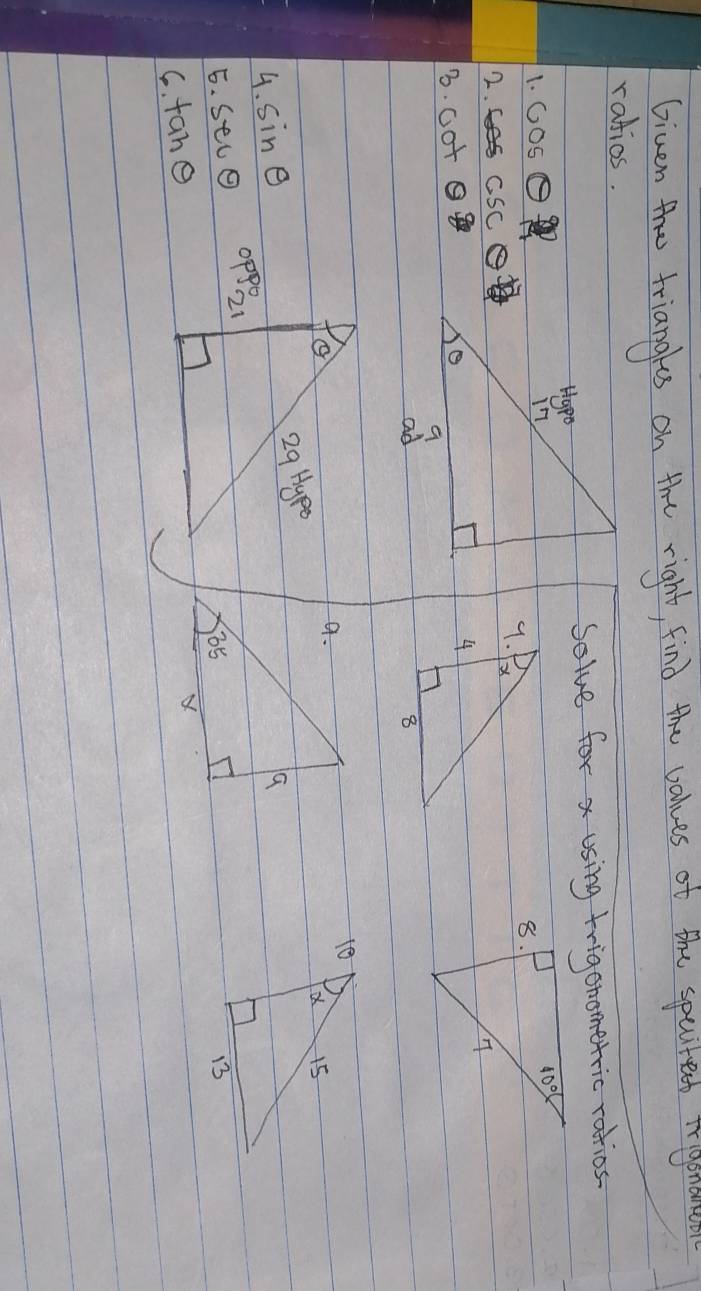 Given the triangles on the right, find the values of the specified trigonometric
ratios.
1. cos θ
2. csc θ
3. cot θ
Hypo
17
θ
9
ad
4. sin θ
5. sec θ
6. tan θ
θ
oppo 21
29 Hypo
Solve for x using trigonometric ratios.
7.
x
4
8
8.
10°
7
9.
35
x
9
10
x
15
13